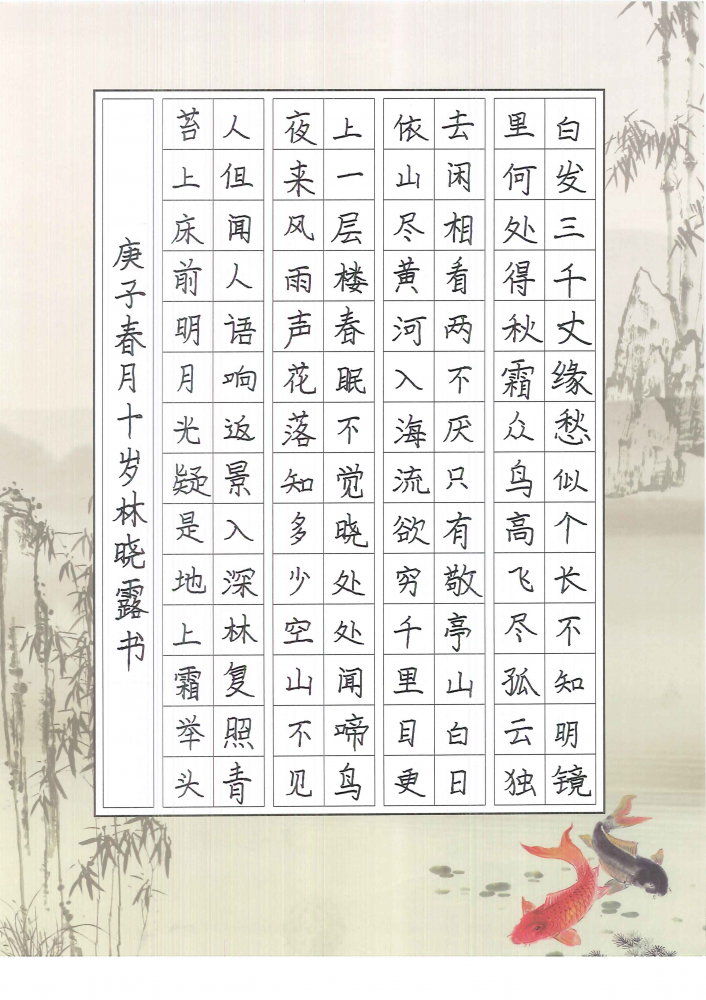 白发三千丈缘愁似个长不知明镜
里何处得秋霜众鸟高飞尽孤云独
去闲相看两不厌只有敬亭山白日
依山尽黄河入海流欲穷千里目更
上一层楼春眠不觉晓处处闻啼鸟
夜来风雨声花落知多少空山不见
人但闻人语响返景入深林复照青
苔上床前明月光疑是地上霜举头
庚子春月十岁林晓露书